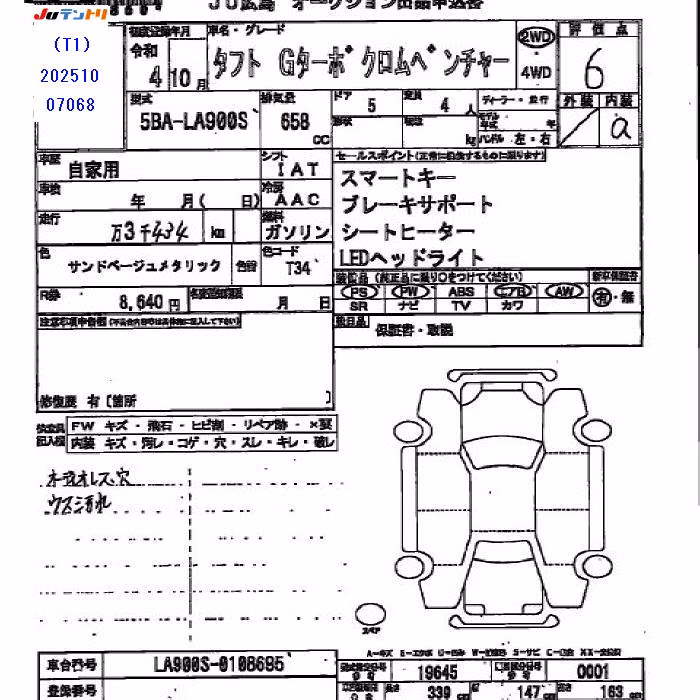 JUテントリ
JU広島 オークション出品申込書
(T1)
202510
07068
初度登録年月
令和
4 10月
車名・グレード
タフト Gターボ クロムベンチャー
2WD
4WD
評価点
6
外装 内装
a
型式
5BA-LA900S
排気量
658
cc
ドア
5
定員
4人
ディーラー・並行
形状
積載
kg
モデル年式
年
ハンドル 左・右
車歴
自家用
シフト
IAT
車検
年 月( 日)
冷房
AAC
走行
万3千434 km
燃料
ガソリン
色
サンドベージュメタリック
色替
色コード
T34
R券
8,640円
月 日
セールスポイント(正常に作動するものに限ります)
スマートキー
ブレーキサポート
シートヒーター
LEDヘッドライト
装備品 (純正品に限り○をつけてください)
新車保証書
PS PW ABS エアB AW
SR ナビ TV カワ
有・無
後日品
保証書・取説
注意事項申告欄
修復歴 有〔箇所 〕
検査員記入欄
FW キズ・飛石・ヒビ割・リペア跡・×要
内装 キズ・汚レ・コゲ・穴・スレ・キレ・破レ
ウス汚れ
スペア
車台番号
LA900S-0108695
登録番号
型式指定番号
19645
類別区分番号
0001
長さ
339
147
高さ
163